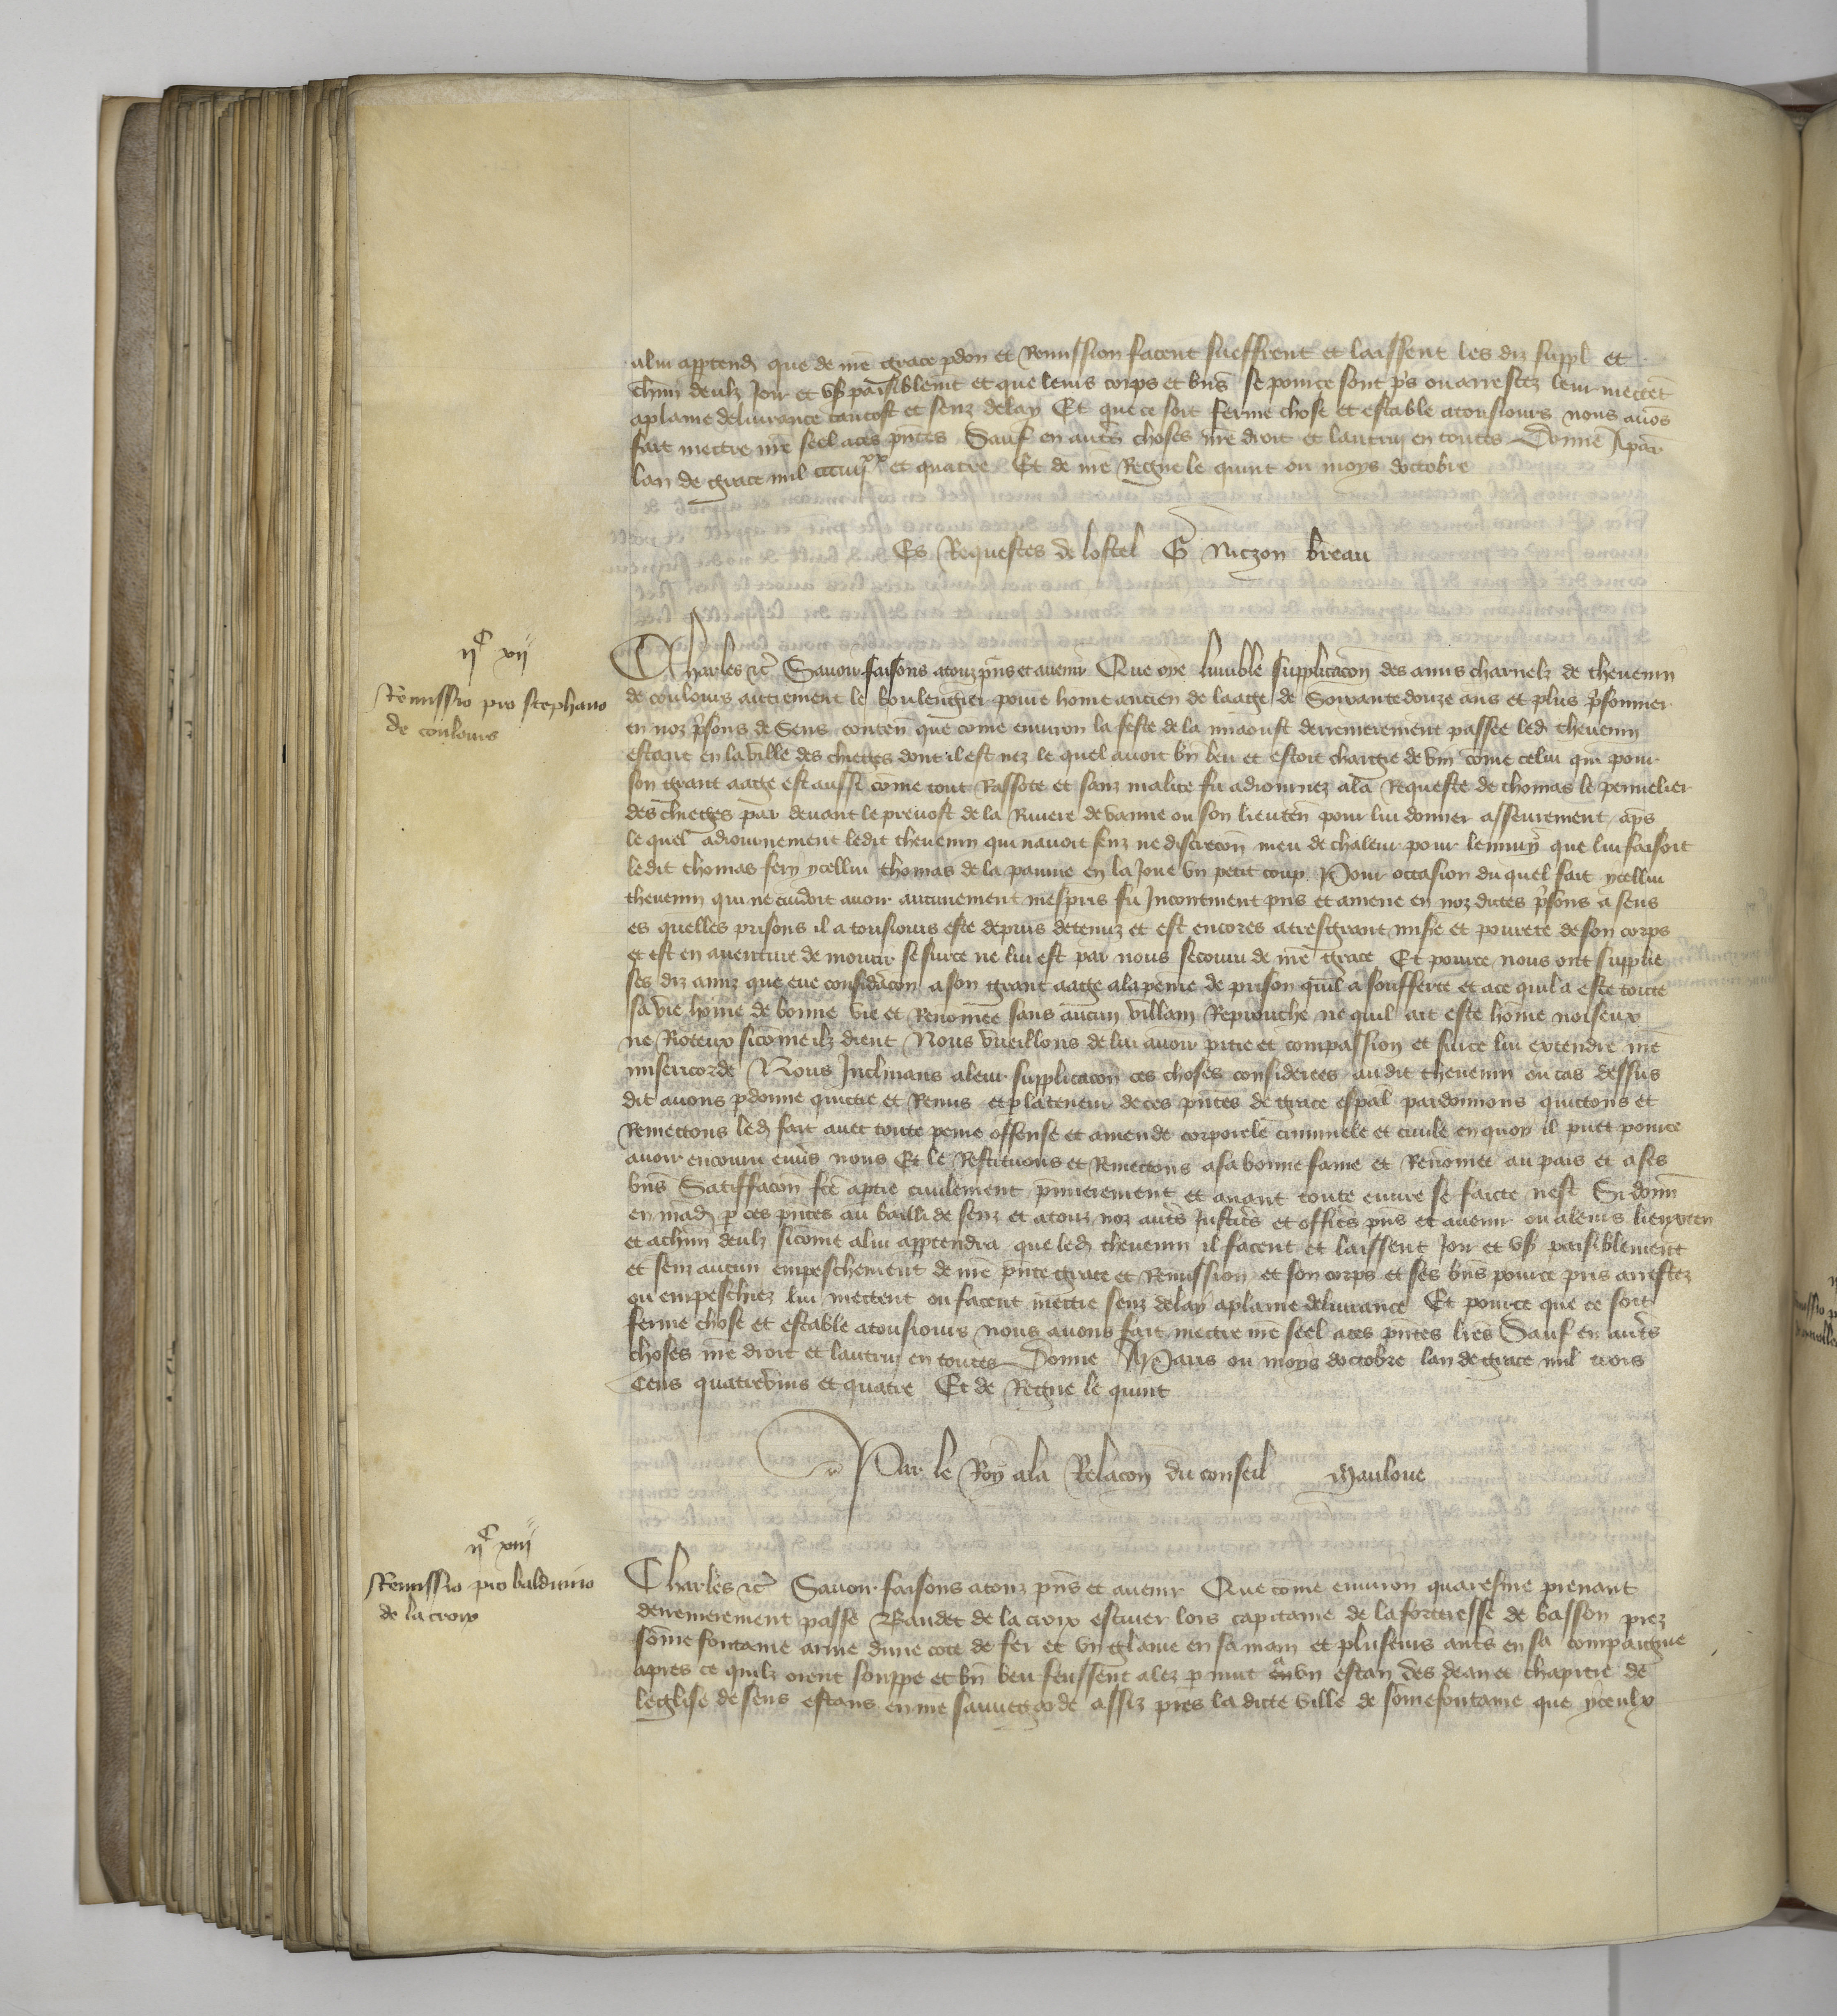 alui appartend que de nre grace pdon et Remission facent sueffrent et laissent les diz suppl et
chun deulz Joir et vser paisiblemt et que leurs corps et bns se pource sont pris ou arrestez leur mectet
aplaine deliurance tantost et senz delay Et que ce soit ferme chose et estable atousiours nous auos
fait mectre nre seel aces pntes Sauf en autres choses nre droit et lautrui en toutes Donne Apar
lan de grace mil ccciiijxx et quatre Et de nre Regne le quint ou moys doctobre
Es Requestes de lostel G Nuczon breau
ijc xij
Remissio pro stephano
de coulours
Charles etc Sauoir faisons atouz pns et auenir Que oye lumble supplicacon des amis charnelz de theuenin
de coulours autrement le boulengier poure home ancien de laage de Soixantedouze ans et plus prisonnier
en noz prisons de Sens conten que come enuiron la feste de la miaoust derrenierement passee led theuenin
estant en la ville des chieges dont il est nez le quel auoit bn beu et estoit chargie de vin come celui qui pour
son grant aage est aussi come tout Rassote et sanz malice fu adiournez ala Requeste de thomas le pennelier
des chieges par deuant le preuost de la Riuiere de vanne ou son lieuten pour lui donner asseurement aps
le quel adiournement ledit theuenin qui nauoit senz ne discrecon meu de chaleur pour lennuy que lui faisoit
ledit thomas fery ycellui thomas de la paume en la Joue vn petit coup Pour occasion du quel fait ycellui
theuenin qui ne cuidoit auoir aucunement mespris fu Incontinent pris et amene en noz dictes prisons a sens
es quelles prisons il a tousiours este depuis detenuz et est encores atresgrant mise et pourete de son corps
et est en auenture de mourir se surce ne lui est par nous secouru de nre grace Et pource nous ont supplie
ses diz amiz que eue considacon a son grant aage alapeine de prison quil a soufferte et ace quil a este toute
sa vie home de bonne vie et Renomee sans aucun villain Reprouche ne quil ait este home noiseux
ne Rioteux sicome ilz dient Nous vueillons de lui auoir pitie et compassion et surce lui extendre nre
misericorde Nous Inclinans aleur supplicacon ces choses considerees audit theuenin ou cas dessus
dit auons pdonne quictie et Remis et plateneur de ces pntes de grace espal pardonnons quictons et
Remectons led fait auec toute peine offense et amende corporele criminele et ciuile en quoy il puet pource
auoir encouru enuers nous Et le Restituons et Remectons asa bonne fame et Renomee au pais et ases
bns Satiffacon fce aptie ciuilement primierement et auant toute euure se faicte nest Si donn
en mad p ces pntes au bailli de senz et atouz noz autres Justiciers et officiers pns et auenir ou aleurs lieuxten
et achun deulz sicome alui appartendra que led theuenin il facent et laissent Joir et vser paisiblement
et senz aucun empeschement de nre pnte grace et Remission et son corps et ses bns pource pris arrestez
ou empeschiez lui mectent ou facent mectre senz delay aplaine deliurance Et pource que ce soit
ferme chose et estable atousiours nous auons fait mectre nre seel aces pntes lres Sauf en autres
choses nre droit et lautrui en toutes Donne A Paris ou moys doctobre lan de grace mil trois
Cens quatrevins et quatre Et de Regne le quint
Par le Roy ala Relacon du conseil Mauloue
ijc xiij
Remissio pro balduino
de lacroix
Charles etc Sauoir faisons atouz pns et auenir Que come enuiron quaresme prenant
derrenierement passe Baudet de la croix escuier lors capitaine de la forteresse de basson prez
somefontaine arme dune cote de fer et vn glaiue en sa main et plusieurs autres en sa compaignie
apres ce quilz orent souppe et bn beu feussent alez p nuit a vn estan des dean et chapitre de
leglise de sens estans en nre sauuegarde assiz pres la dicte ville de somefontaine que yceulx